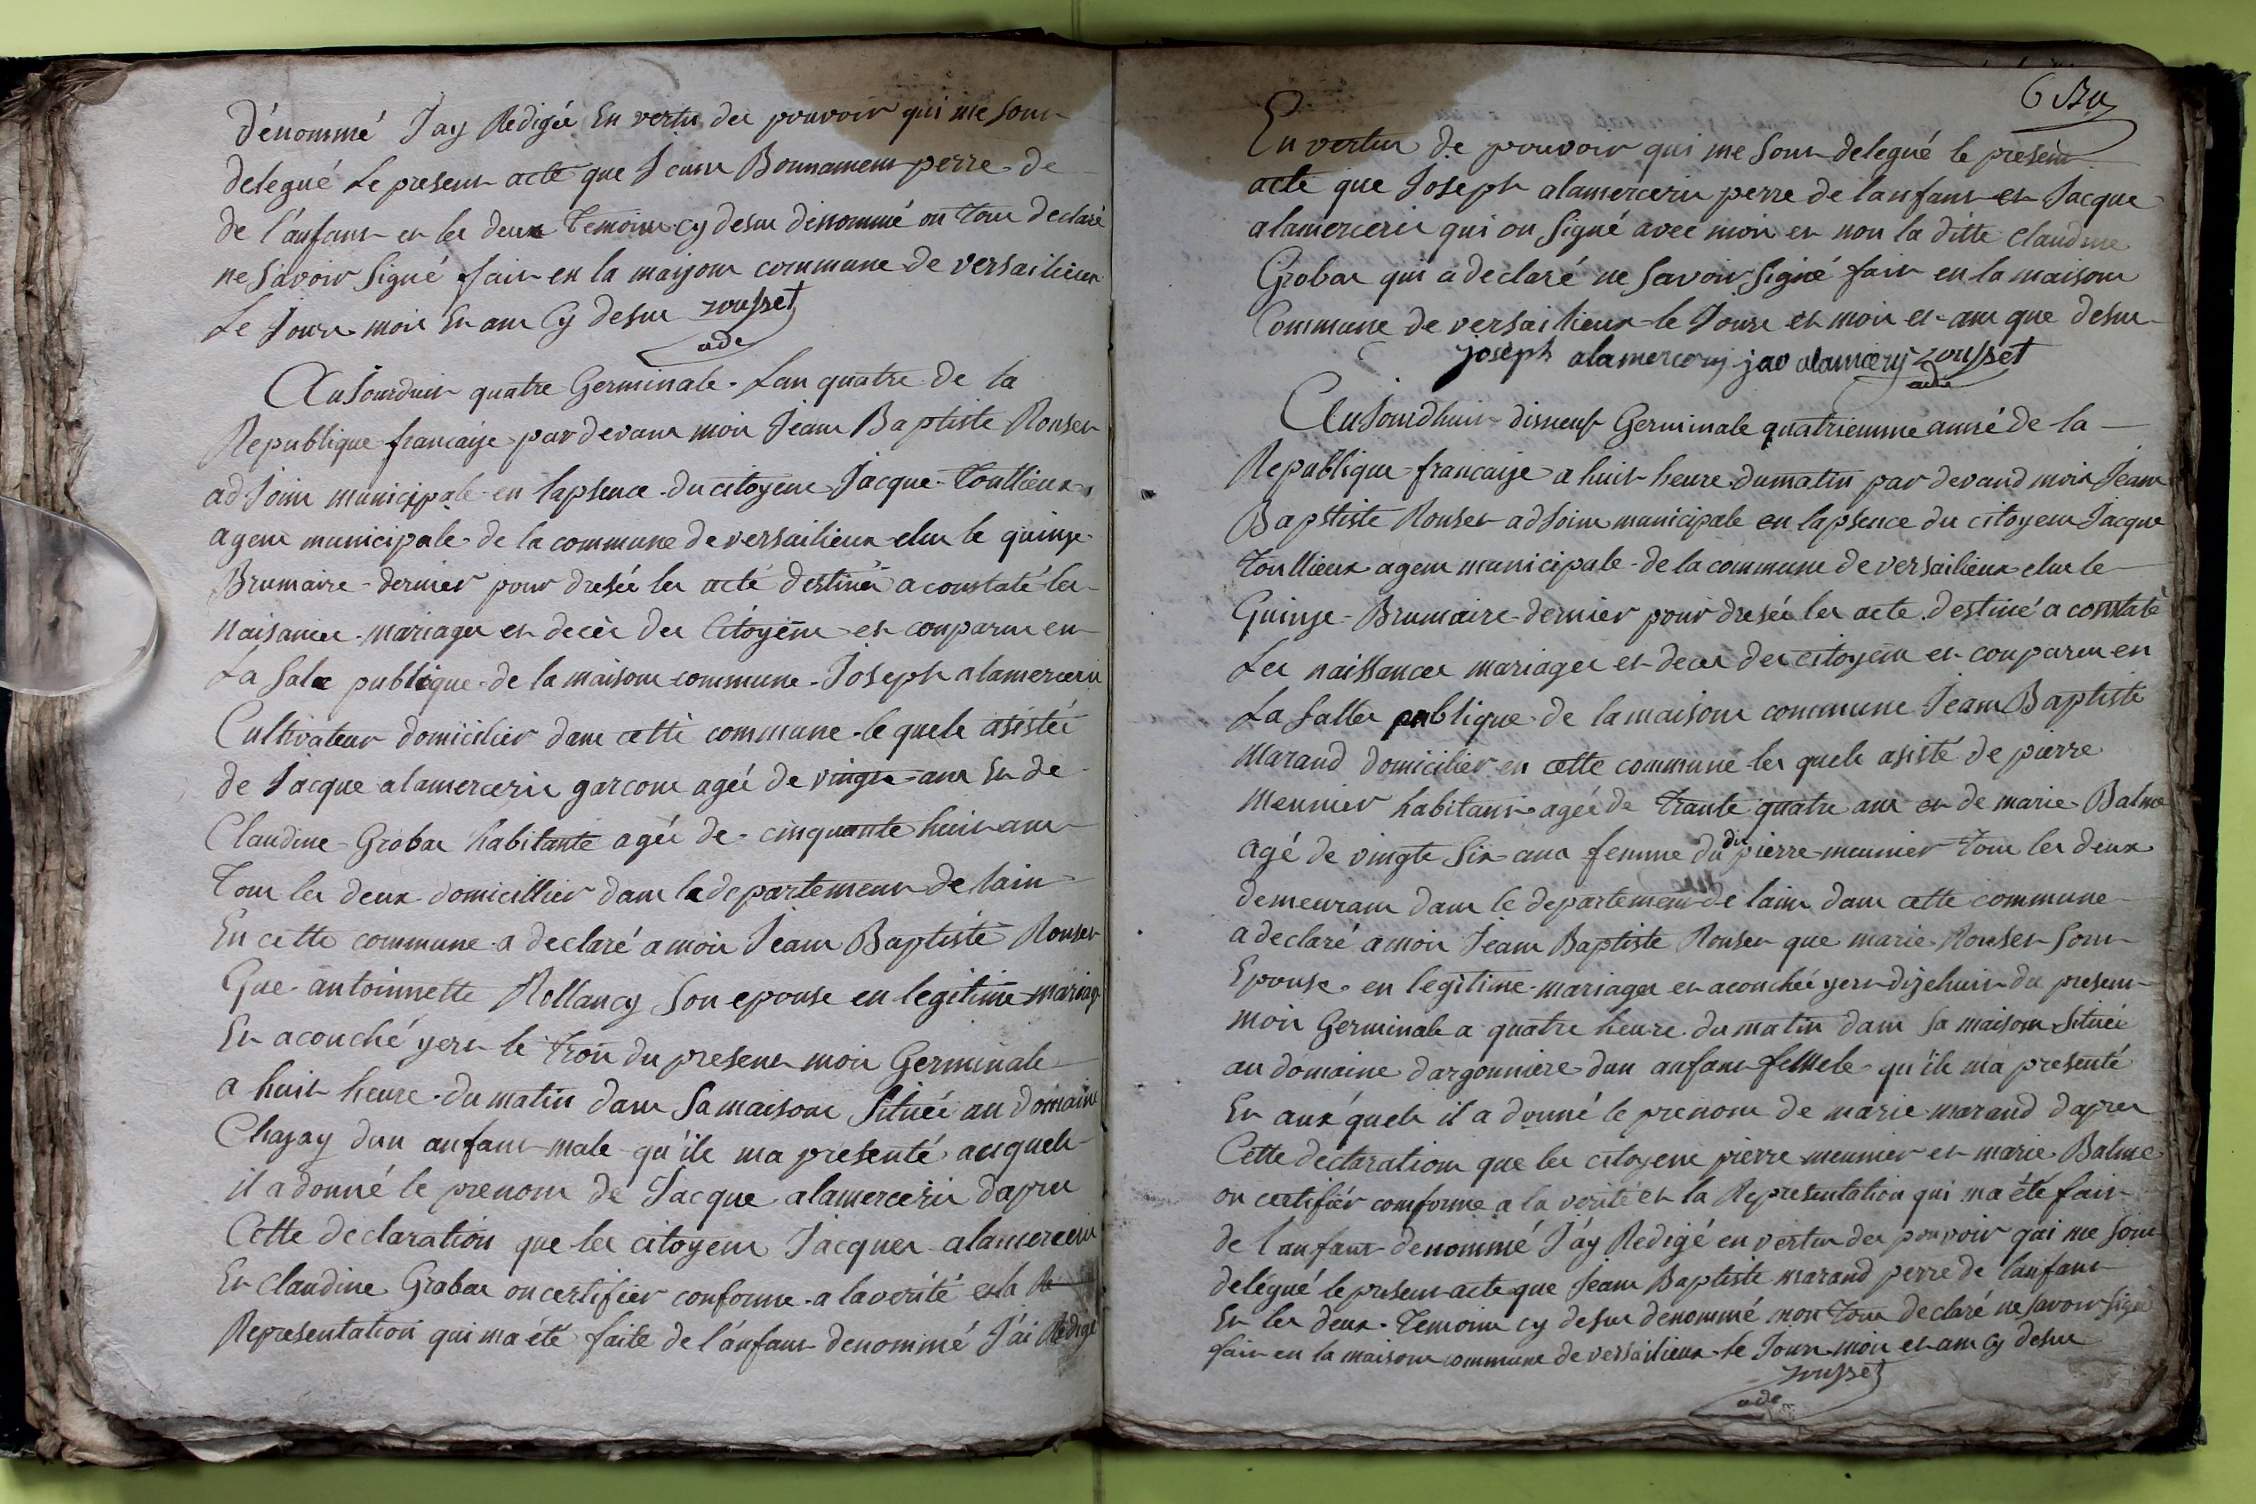 dénommé Jay Redigée En vertu der pouvoir qui me Sont
delegué Le present acte que Jean Bonnament perre de
de l'anfant et les deux Temoins cy desur dénommé on tour declaré
ne Savoir Signé fait en la maison commune de versailieux
Le Jour moir En an Cy desur rousset
ade
AuJourduit quatre Germinale Lan quatre de la
Republique francaise par devant moi Jean Baptiste Rouset
adJoint municipale en lapsence du citoyent Jacque Toullieux
agent municipale de la commune de versailieux elut le quinze
Brumaire dernier pour dresée les acté destinér a constaté les
Naisances mariages et decèr des Citoyent et conparut en
La Sale publique de la maison commune Joseph alamercerie
Cultivateur domicilier dans cette commune le quele asistée
de Jacque alamercerie garcont ageé de vingte ans Et de
Claudine Grobas habitante ageé de cinquante huit ans
Tour les deux domicillier dans le departement de lain
En cette commune a declaré a moir Jean Baptiste Rouset
Que antoinnette Rollancy Son epouse en legitime mariage
Et acouché yert le troir du present moir Germinale
a huit heure du matin dans Sa maison Située au domaine
Chazay dun anfant male qu'ile ma présenté auquele
il a donné le prenom de Jacque alamercerie daprer
Cette declaration que les citoyent Jacques alamercerie
Et Claudine Grobas on certifier conforme a la verité et la Re
Representation qui ma été faite de l'anfant denommé J'ai Redigé
6 Bru
En vertus de pouvoir qui me Sont delegué le present
acte que Joseph alamercerie perre de lanfant et Jacque
alamercerie qui on Signé avec moi et non la ditte claudine
Grobas qui a declaré ne Savoir Signé fait en la maison
Commune de versailieux le Jour et moir et an que desur
joseph alamercery jac alamcery rousset
ade
AuJourdhuit disneuf Germinale quatriemme anné de la
Republique francaise a huit heure dumatin par devand moir Jean
Bapstiste Rouset adJoint municipale en lapsence du citoyent Jacque
Toullieux agent municipale de la commune de versailieux elut le
Quinze Brumaire dernier pour dresée les acte destiné a constaté
Les naissances mariages et deces des citoyent et conparut en
La Salles publique de la maison commune Jean Baptiste
Marand domicilier en cette commune les quele asisté de pierre
Meunier habitant ageé de Trante quatre ans et de marie Balme
Agé de vingte Six ans femme du dit pierre meunier Tour les deux
demeurant dans le departement de lain dans cette commune
a declaré a moir Jean Baptiste Rouset que marie Rouset Sont
Epouse en legitime mariages et acouchée yert dizehuit du present
moir Germinale a quatre heure du matin dans Sa maison Située
au domaine dargonniere dun anfant femele qu'ile ma presenté
Et aux quele il a donné le prenom de marie marand daprer
Cette declaration que les citoyent pierre meunier et marie Balme
on certifiér comforme a la verité et la Representation qui ma été fait
de l'anfant denommé J'ay Redigé en vertu der pouvoir qui me Sont
delégué le present acte que Jean Baptiste marand perre de lanfant
Et les deux Temoins cy desur denommé mon Tour declaré ne Savoir Signé
fait en la maison commune de versailieux le Jour moir et an Cy desur
rousset
ade